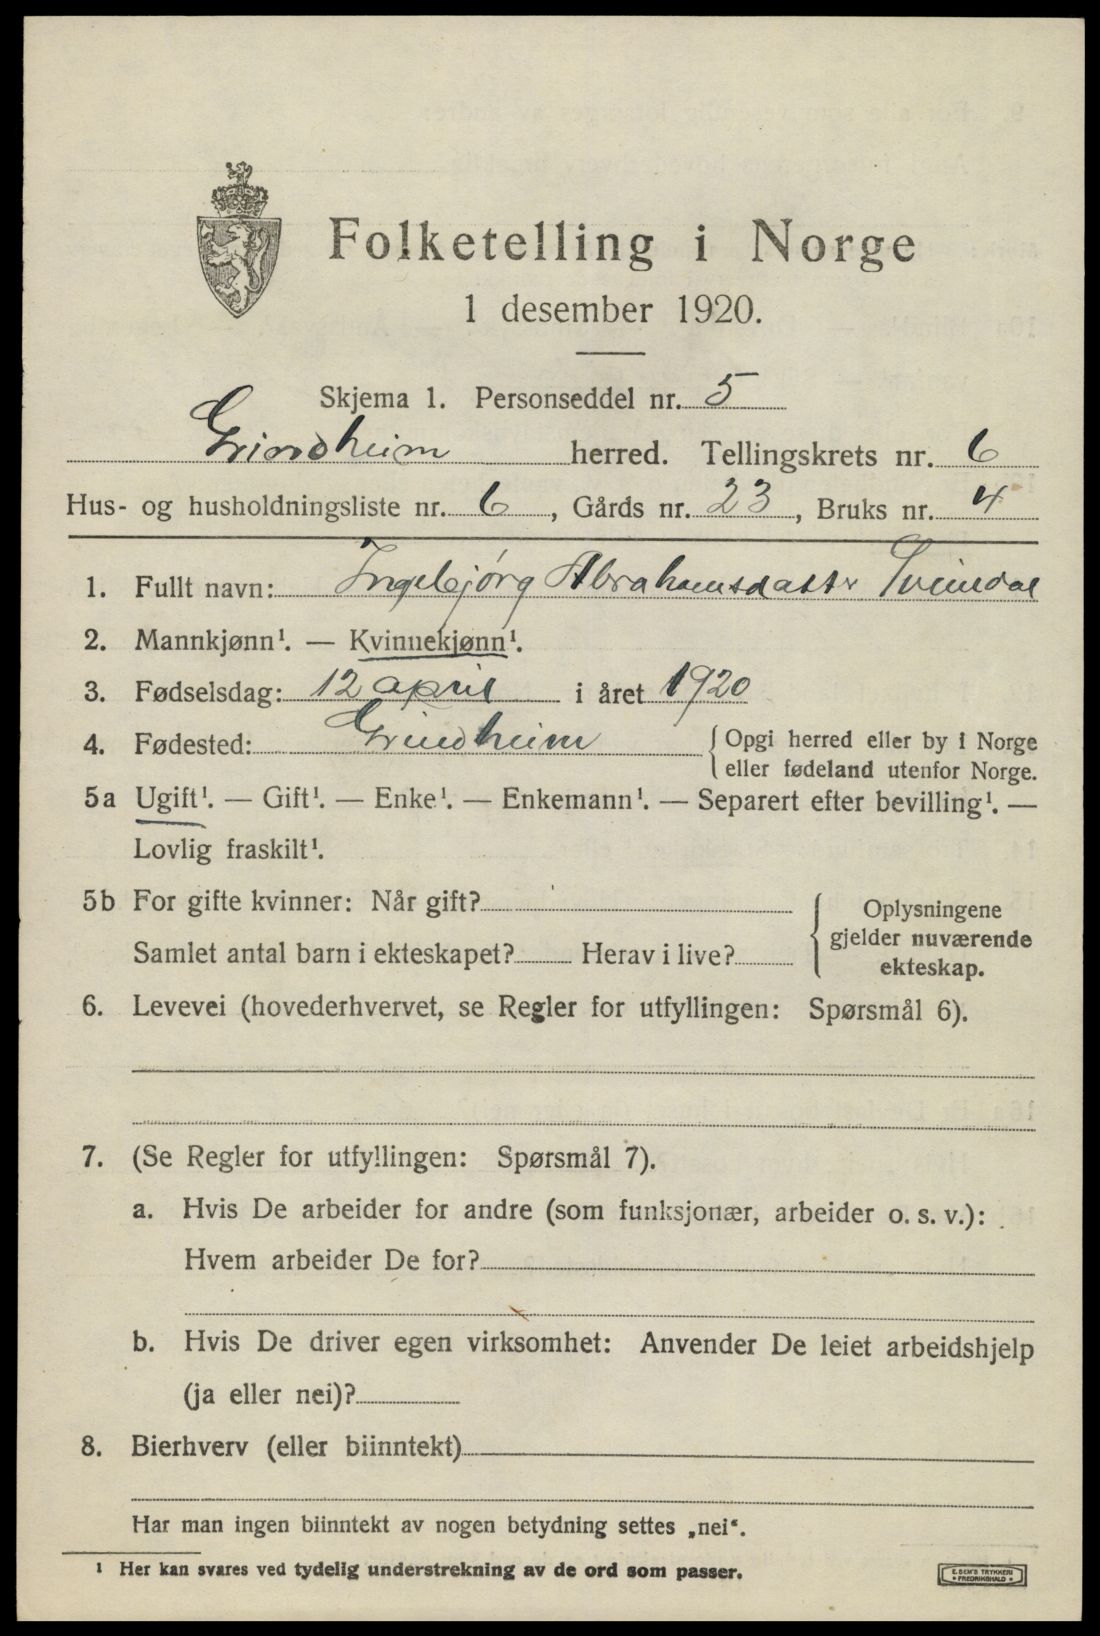 Folketelling i Norge
1 desember 1920.
Skjema 1. Personseddel nr. 5
Grindheim herred. Tellingskrets nr. 6
Hus- og husholdningsliste nr. 6, Gårds nr. 23, Bruks nr. 4
1. Fullt navn: Ingebjørg Abrahamsdatter Sveindal
2. Mannkjønn¹. — Kvinnekjønn¹.
3. Fødselsdag: 12 april i året 1920
4. Fødested: Grindheim { Opgi herred eller by i Norge
eller fødeland utenfor Norge.
5a Ugift¹. — Gift¹. — Enke¹. — Enkemann¹. — Separert efter bevilling¹. —
Lovlig fraskilt¹.
5b For gifte kvinner: Når gift?
Samlet antal barn i ekteskapet? Herav i live?
Oplysningene
gjelder nuværende
ekteskap.
6. Levevei (hovederhvervet, se Regler for utfyllingen: Spørsmål 6).
7. (Se Regler for utfyllingen: Spørsmål 7).
a. Hvis De arbeider for andre (som funksjonær, arbeider o. s. v.):
Hvem arbeider De for?
b. Hvis De driver egen virksomhet: Anvender De leiet arbeidshjelp
(ja eller nei)?
8. Bierhverv (eller biinntekt)
Har man ingen biinntekt av nogen betydning settes „nei“.
¹ Her kan svares ved tydelig understrekning av de ord som passer.
E. SEM'S TRYKKERI
• FREDRIKSHALD •